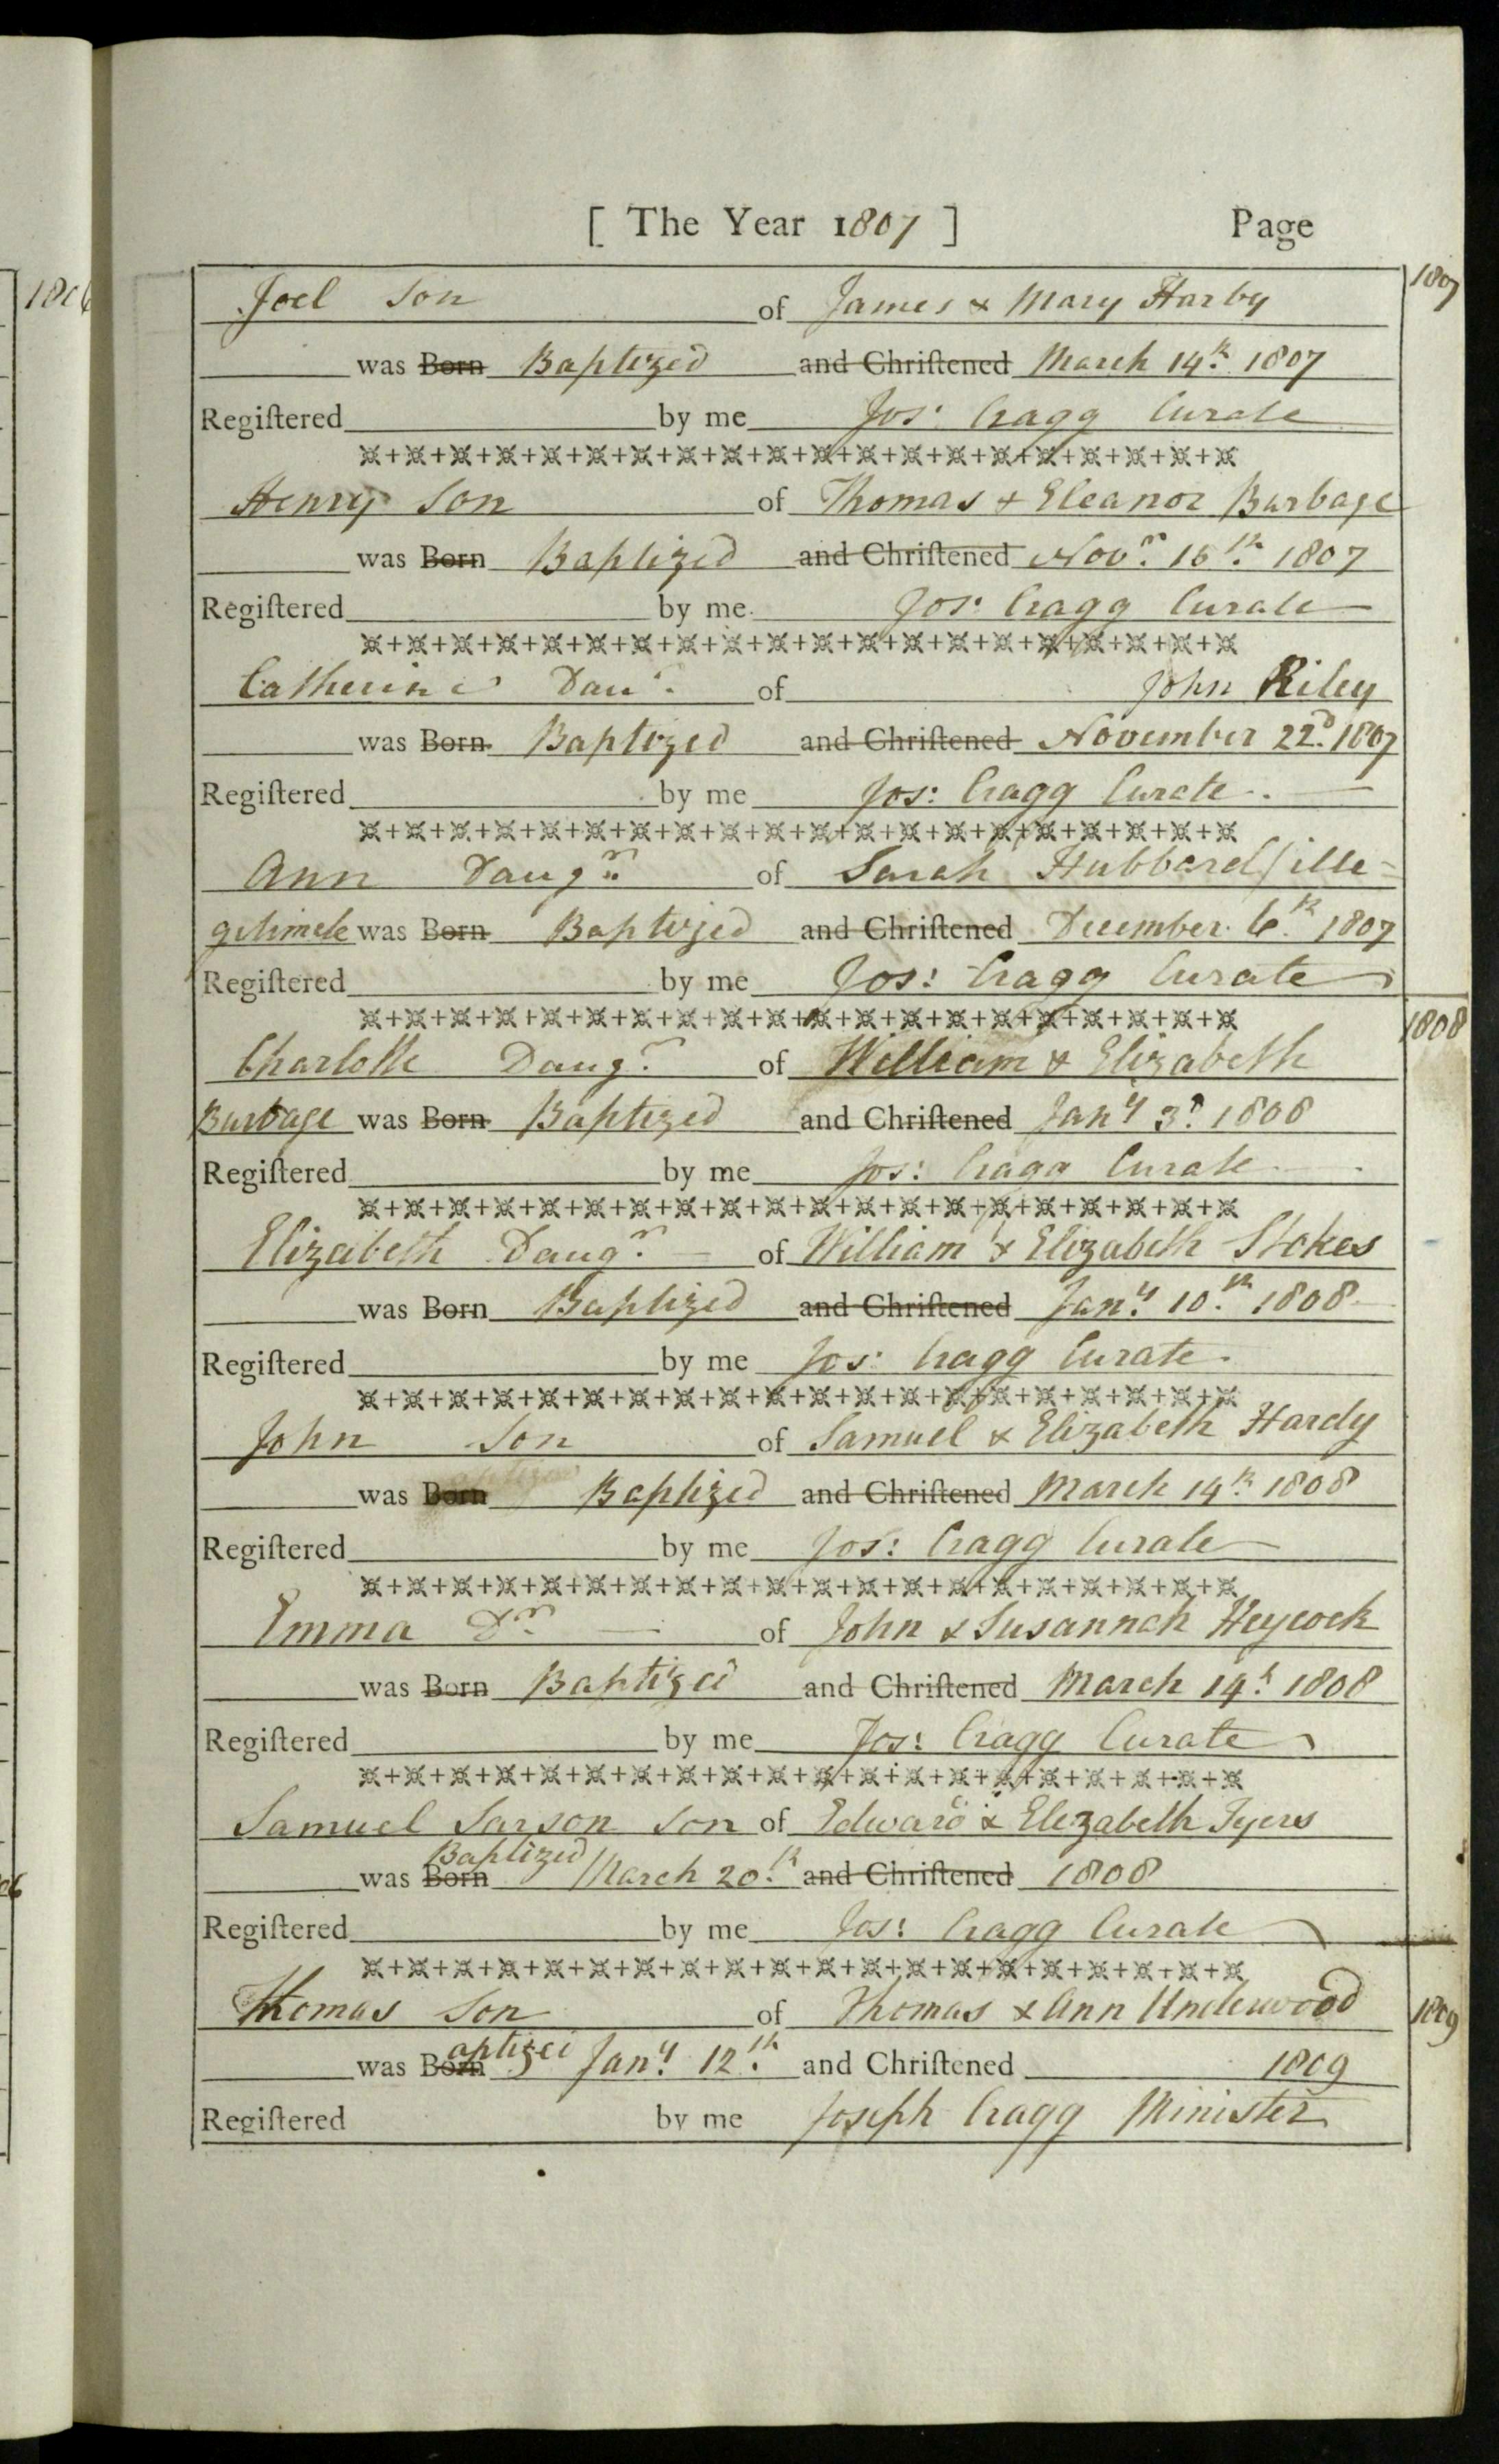 [ The Year 1807 ] Page
1806
1807
Joel Son of James & Mary Harby
was Born Baptized and Chriſtened March 14th. 1807
Regiſtered by me Jos: Cragg Curate
Henry Son of Thomas + Eleanor Burbage
was Born Baptized and Chriſtened Novr. 15th. 1807
Regiſtered by me Jos: Cragg Curate
Catherine Daur. of John Riley
was Born Baptized and Chriſtened November 22d. 1807
Regiſtered by me Jos: Cragg Curate
Ann Daugr. of Sarah Hubbard / ille=
gitimate was Born Baptized and Chriſtened December 6th. 1807
Regiſtered by me Jos: Cragg Curate
1808
Charlotte Daugr. of William & Elizabeth
Burbage was Born Baptized and Chriſtened Jany 3d. 1808
Regiſtered by me Jos: Cragg Curate
Elizabeth Daugr. of William & Elizabeth Stokes
was Born Baptized and Chriſtened Jany. 10th. 1808
Regiſtered by me Jos: Cragg Curate.
John Son of Samuel & Elizabeth Hardy
was Born Baptized and Chriſtened March 14th. 1808
Regiſtered by me Jos: Cragg Curate
Emma Dr. of John & Susannah Heycock
was Born Baptized and Chriſtened March 14th. 1808
Regiſtered by me Jos: Cragg Curate
Samuel Sarson Son of Edward & Elizabeth Tyers
was Born Baptized March 20th. and Chriſtened 1808
Regiſtered by me Jos: Cragg Curate
1809
Thomas Son of Thomas & Ann Underwood
was Born aptized Jany. 12th. and Chriſtened 1809
Regiſtered by me Joseph Cragg Minister